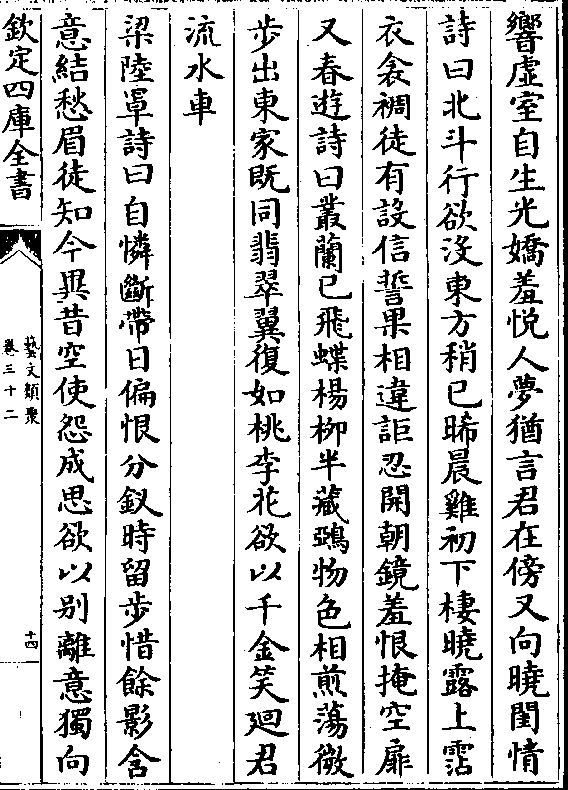 響虚室自生光嬌羞悦人夢猶言君在傍又向曉閨情
詩曰北斗行欲没東方稍已晞晨雞初下棲曉露上霑
衣衾裯徒有設信誓果相違詎忍開朝鏡羞恨掩空扉
又春遊詩曰叢蘭已飛蝶楊柳半藏鵶物色相煎蕩微
步出東家既同翡翠翼復如桃李花欲以千金笑廻君
流水車
梁陸罩詩曰自憐斷帶日偏恨分釵時留步惜餘影含
意結愁眉徒知今異昔空使怨成思欲以别離意獨向
欽定四庫全書
藝文類聚
卷三十二
十四